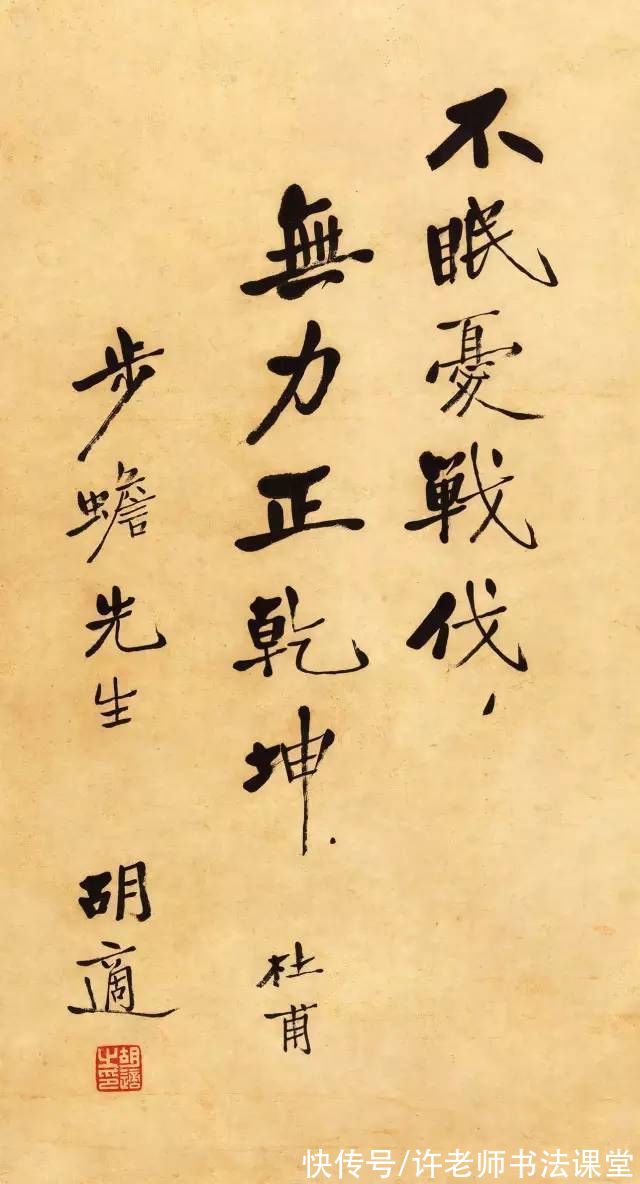 不眠憂戰伐，
無力正乾坤.
杜甫
步蟾先生
胡適
胡適之印
快传号/许老师书法课堂